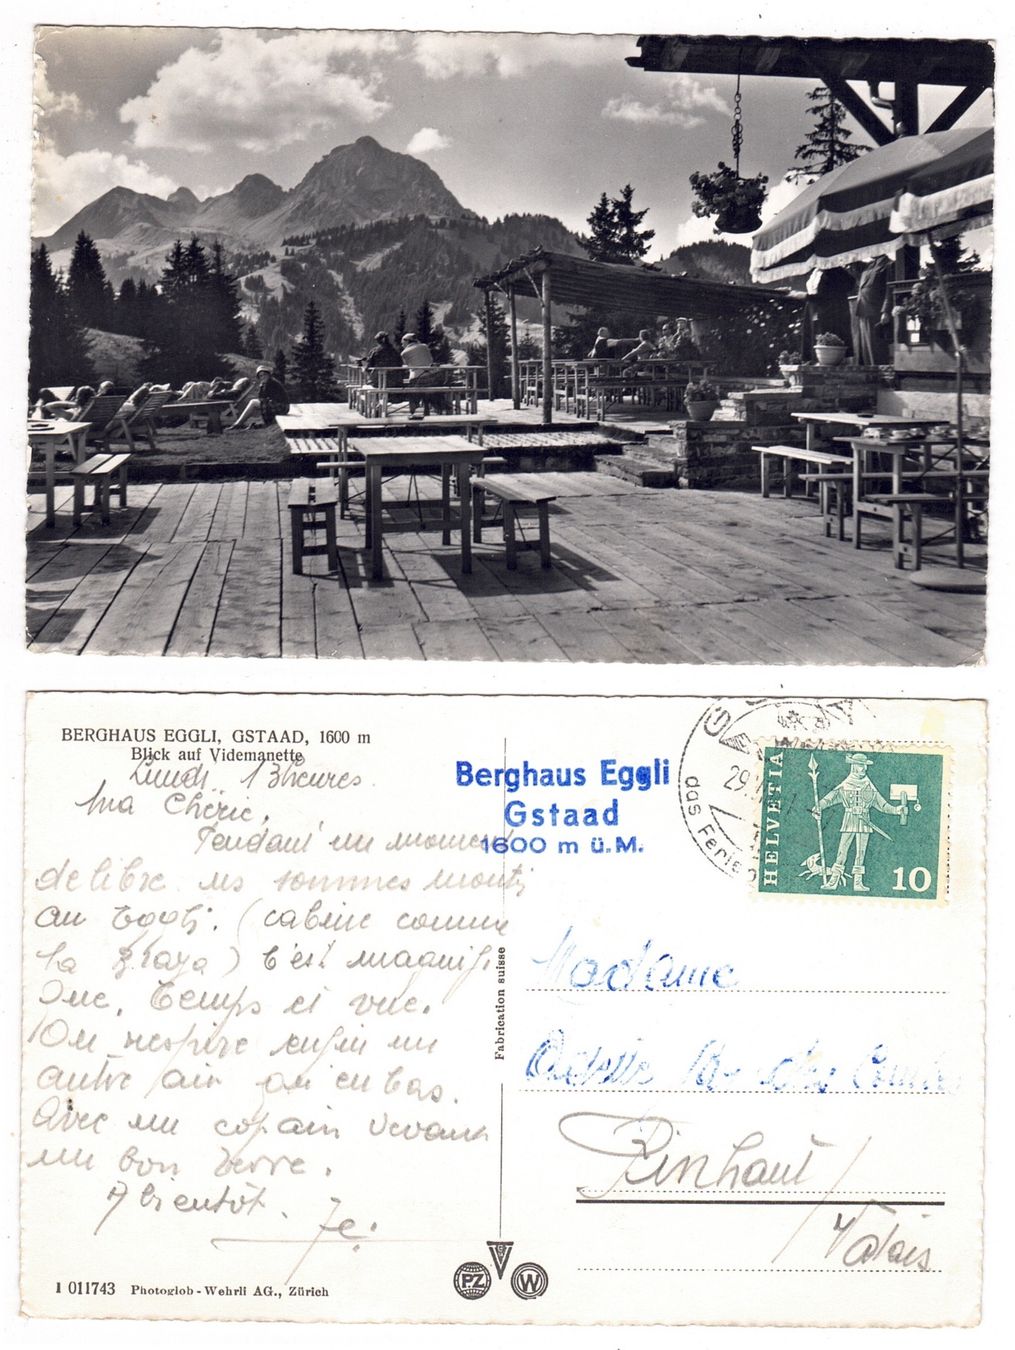 BERGHAUS EGGLI, GSTAAD, 1600 m
Blick auf Videmanette
Lundi 13 heures.
Ma Chérie,
Pendant un moment
de libre ns sommes monté
au Eggli. (cabine comme
la) C'est magnifi
que, temps et vue.
On respire enfin un
autre air qu'en bas.
Avec un copain devant
un bon verre.
A bientôt.
Berghaus Eggli
Gstaad
1600 m ü.M.
das Ferie
29
HELVETIA
10
Fabrication suisse
Madame
Odette
Finhaut
Valais
PZ
W
1 011743 Photoglob-Wehrli AG., Zürich